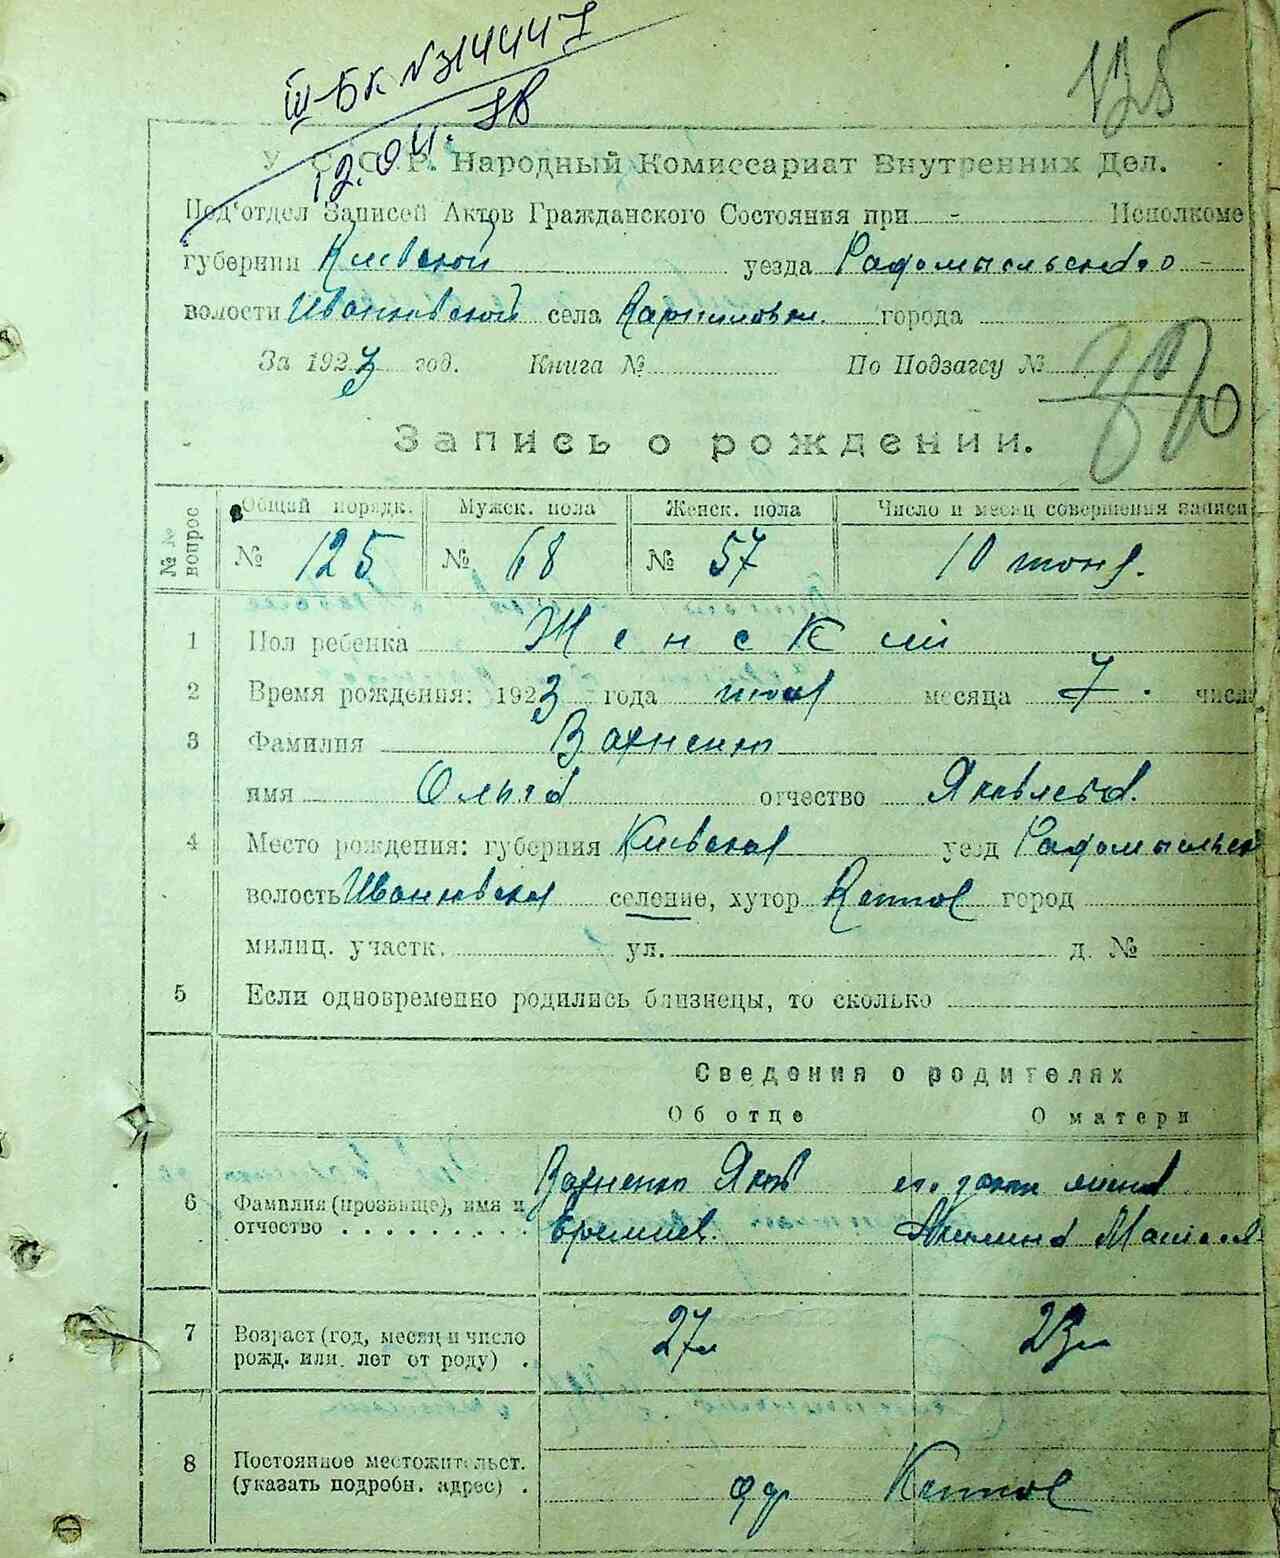 III-БК №314447
12.04.78
125
У. С. С. Р. Народный Комиссариат Внутренних Дел.
Под'отдел Записей Актов Гражданского Состояния при - Исполкоме
губернии Киевской уезда Радомысльского -
волости Иванковской села города
За 1923 год. Книга № По Подзагсу №
Запись о рождении.
№№ вопрос Общий порядк. Мужск. пола Женск. пола Число и месяц совершения записи
№ 125 № 68 № 57 10 июня.
1 Пол ребенка Женский
2 Время рождения: 1923 года месяца 7 числа
3 Фамилия Вахненко
имя Ольга отчество Яковлева.
4 Место рождения: губерния Киевская уезд Радомысльск
волость Иванковская селение, хутор город
милиц. участк. ул. д. №
5 Если одновременно родились близнецы, то сколько
Сведения о родителях
Об отце О матери
6 Фамилия (прозвище), имя и Вахненко Яков ег. жена
отчество . . . . . . . . . Еремиев. Акилина
7 Возраст (год, месяц и число 27 л 23 л
рожд. или лет от роду) .
8 Постоянное местожительст.
(указать подробн. адрес) .